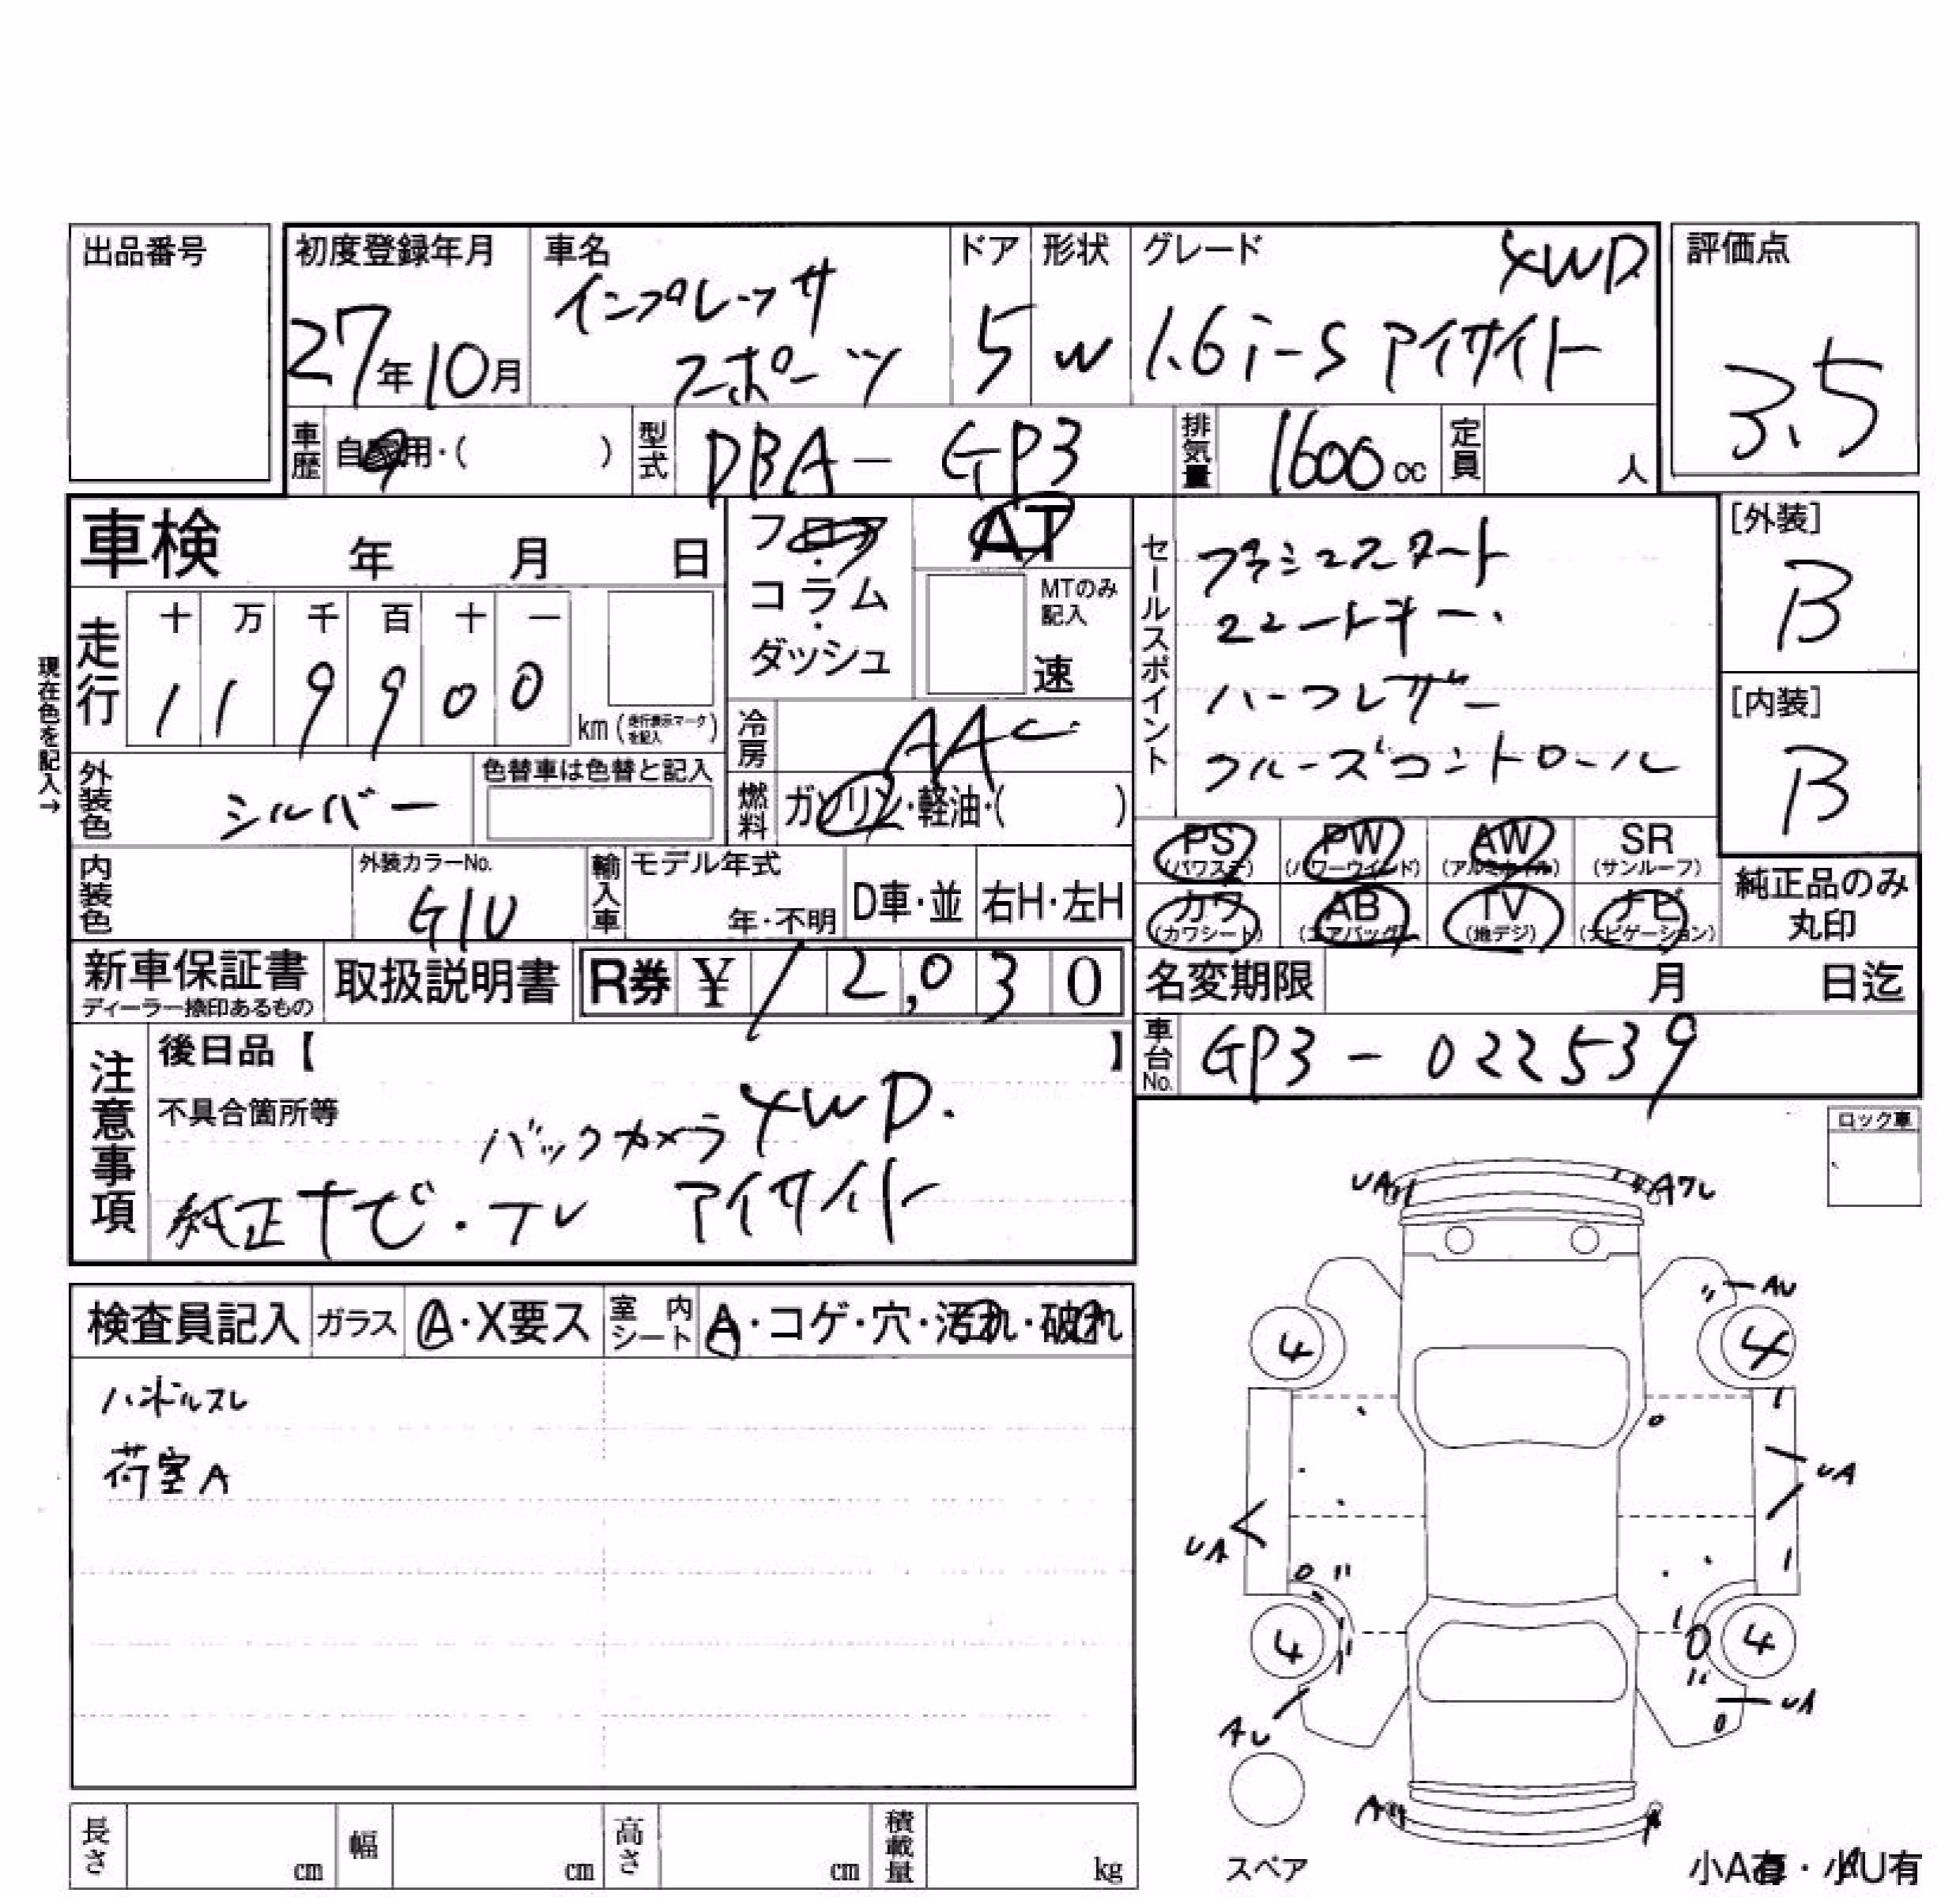 出品番号
初度登録年月
27年10月
車名
インプレッサ
スポーツ
ドア
5
形状
W
グレード
4WD
1.6i-S アイサイト
評価点
3.5
車歴
自家用・( )
型式
DBA- GP3
排気量
1600cc
定員
人
車検 年 月 日
フロア
・
コラム
・
ダッシュ
AT
MTのみ
記入
速
セールスポイント
プッシュスタート
スマートキー.
ハーフレザー
クルーズコントロール
[外装]
B
[内装]
B
現在色を記入→
走行
十 万 千 百 十 一
1 1 9 9 0 0
km(走行表示マークを記入)
冷房
AAC
燃料
ガソリン・軽油・( )
外装色
シルバー
色替車は色替と記入
PS
(パワステ)
PW
(パワーウインド)
AW
(アルミホイル)
SR
(サンルーフ)
カワ
(カワシート)
AB
(エアバッグ)
TV
(地デジ)
ナビ
(ナビゲーション)
純正品のみ
丸印
内装色
外装カラーNo.
G1U
輸入車
モデル年式
年・不明
D車・並
右H・左H
新車保証書
ディーラー捺印あるもの
取扱説明書
R券 ¥ 12,030
名変期限 月 日迄
車台No.
GP3-022539
注意事項
後日品【 】
不具合箇所等
バックカメラ 4WD.
純正ナビ・テレ アイサイト
ロック車
検査員記入
ガラス
A・X要ス
室内シート
A・コゲ・穴・汚れ・破れ
ハンドルスレ
荷室A
UA
Aワレ
AU
4
4
UA
UA
4
4
AU
UA
A
A
スペア
小A有・小U有
長さ
cm
幅
cm
高さ
cm
積載量
kg